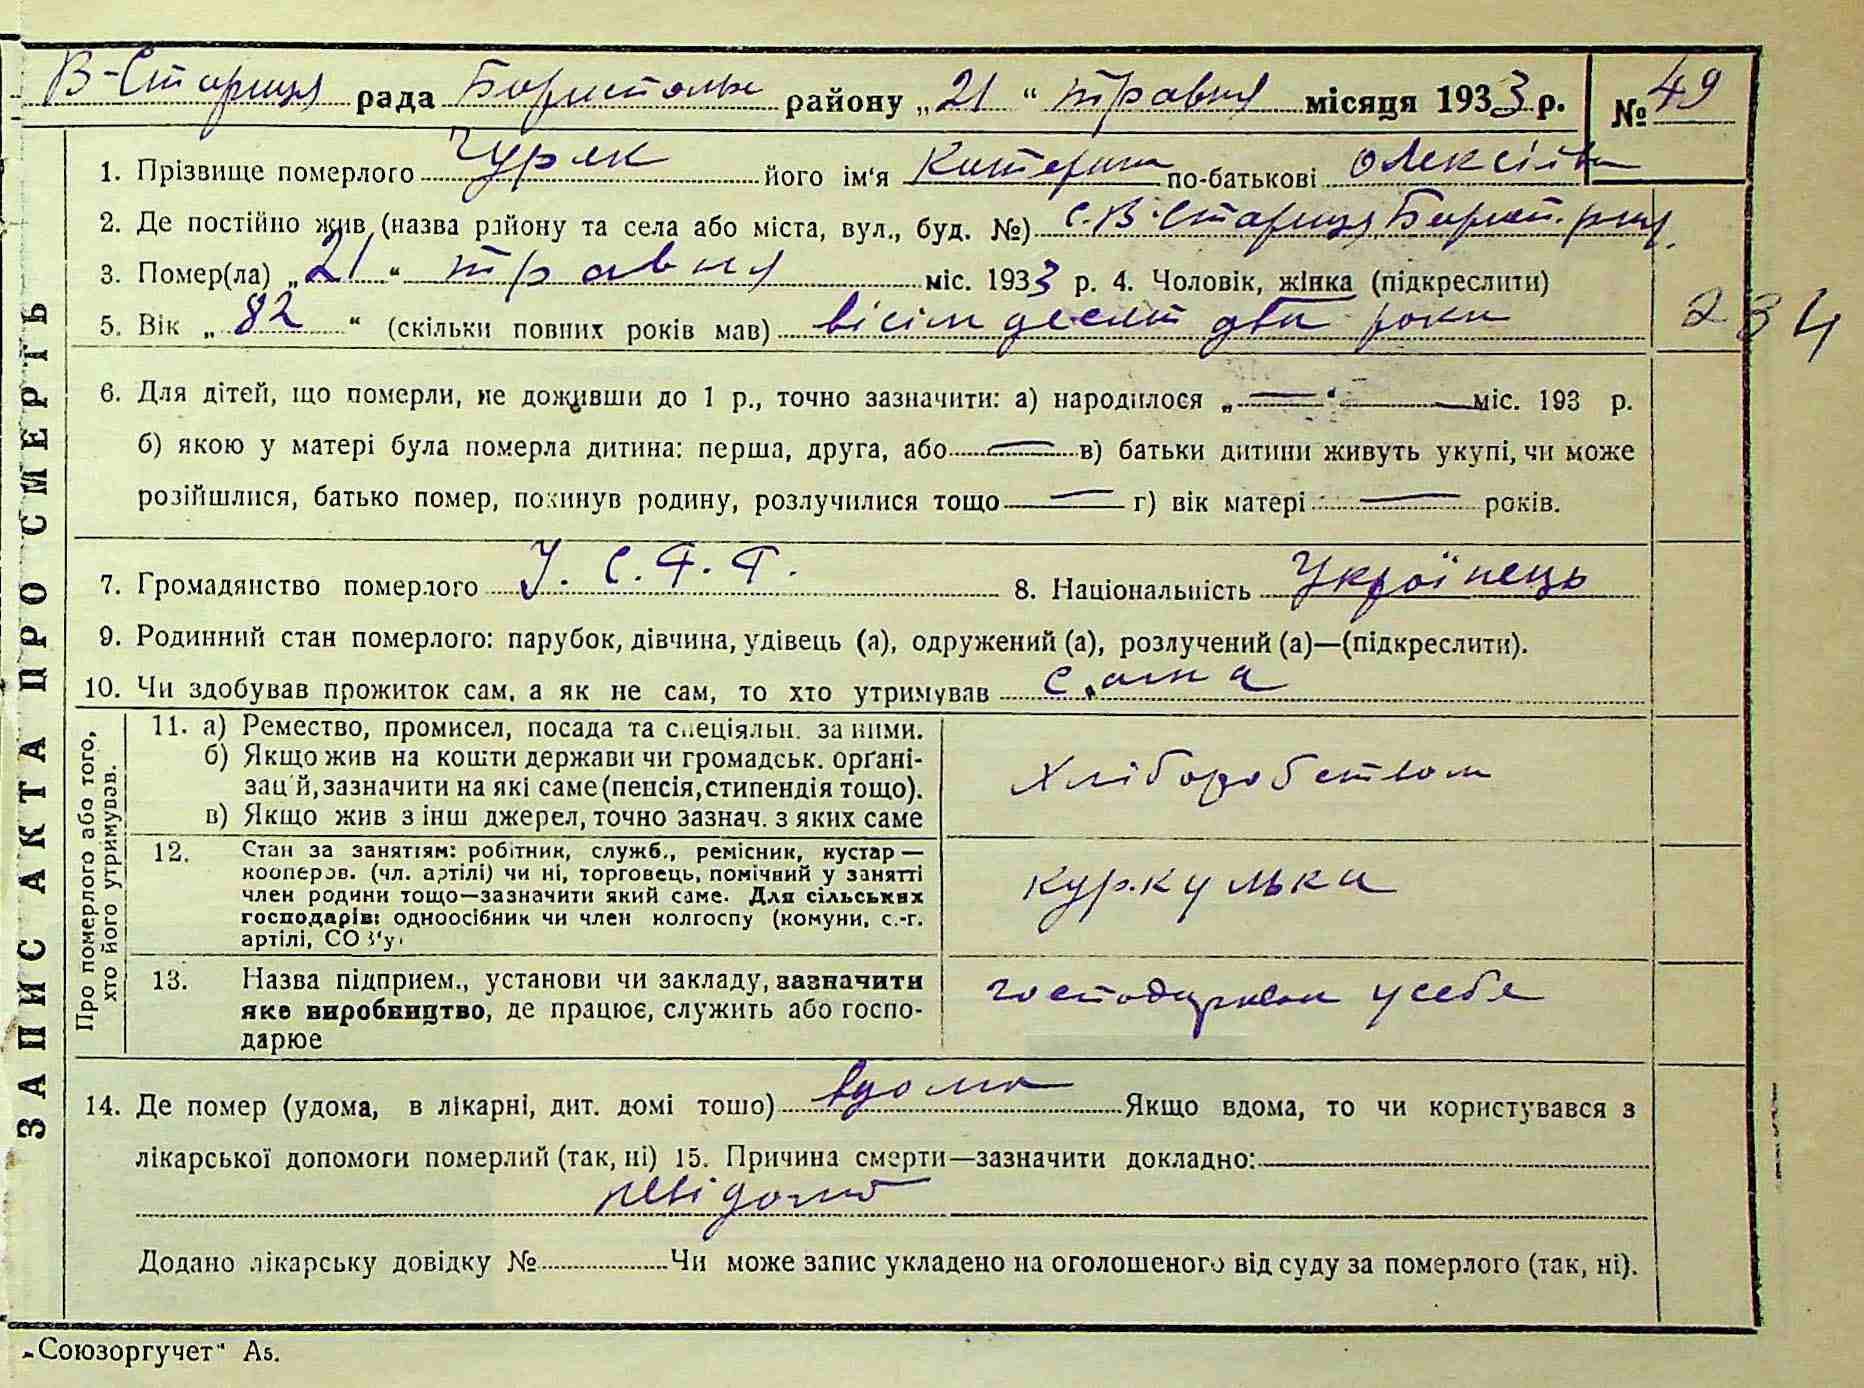 В-Стариця рада Бориспольск району „21“ травня місяця 1933 р. № 49
1. Прізвище померлого Гуряк його ім'я Катерина по-батькові Олексіївн
2. Де постійно жив (назва району та села або міста, вул., буд. №) с. В-Стариця Борисп. рну.
3. Помер(ла) „21“ травня міс. 1933 р. 4. Чоловік, жінка (підкреслити)
5. Вік „82“ (скільки повних років мав) вісімдесят два роки
234
6. Для дітей, що померли, не доживши до 1 р., точно зазначити: а) народилося „—“ — міс. 193 р.
б) якою у матері була померла дитина: перша, друга, або — в) батьки дитини живуть укупі, чи може
розійшлися, батько помер, покинув родину, розлучилися тощо — г) вік матері — років.
7. Громадянство померлого У. С. Р. Р. 8. Національність Українець
9. Родинний стан померлого: парубок, дівчина, удівець (а), одружений (а), розлучений (а)—(підкреслити).
10. Чи здобував прожиток сам, а як не сам, то хто утримував сама
ЗАПИС АКТА ПРО СМЕРТЬ
Про померлого або того,
хто його утримував.
11. а) Ремество, промисел, посада та спеціяльн. за ними.
б) Якщо жив на кошти держави чи громадськ. орґані-
зац й, зазначити на які саме (пенсія, стипендія тощо).
в) Якщо жив з інш джерел, точно зазнач. з яких саме
Хліборобством
12. Стан за занятіям: робітник, служб., ремісник, кустар —
кооперов. (чл. артілі) чи ні, торговець, помічний у занятті
член родини тощо—зазначити який саме. Для сільських
господарів: одноосібник чи член колгоспу (комуни, с.-г.
артілі, СОЗ'у)
куркулька
13. Назва підприєм., установи чи закладу, зазначити
яке виробництво, де працює, служить або госпо-
дарює
усебя
14. Де помер (удома, в лікарні, дит. домі тощо) вдома Якщо вдома, то чи користувався з
лікарської допомоги померлий (так, ні) 15. Причина смерти—зазначити докладно:
невідомо
Додано лікарську довідку № Чи може запис укладено на оголошеного від суду за померлого (так, ні).
„Союзоргучет“ А5.